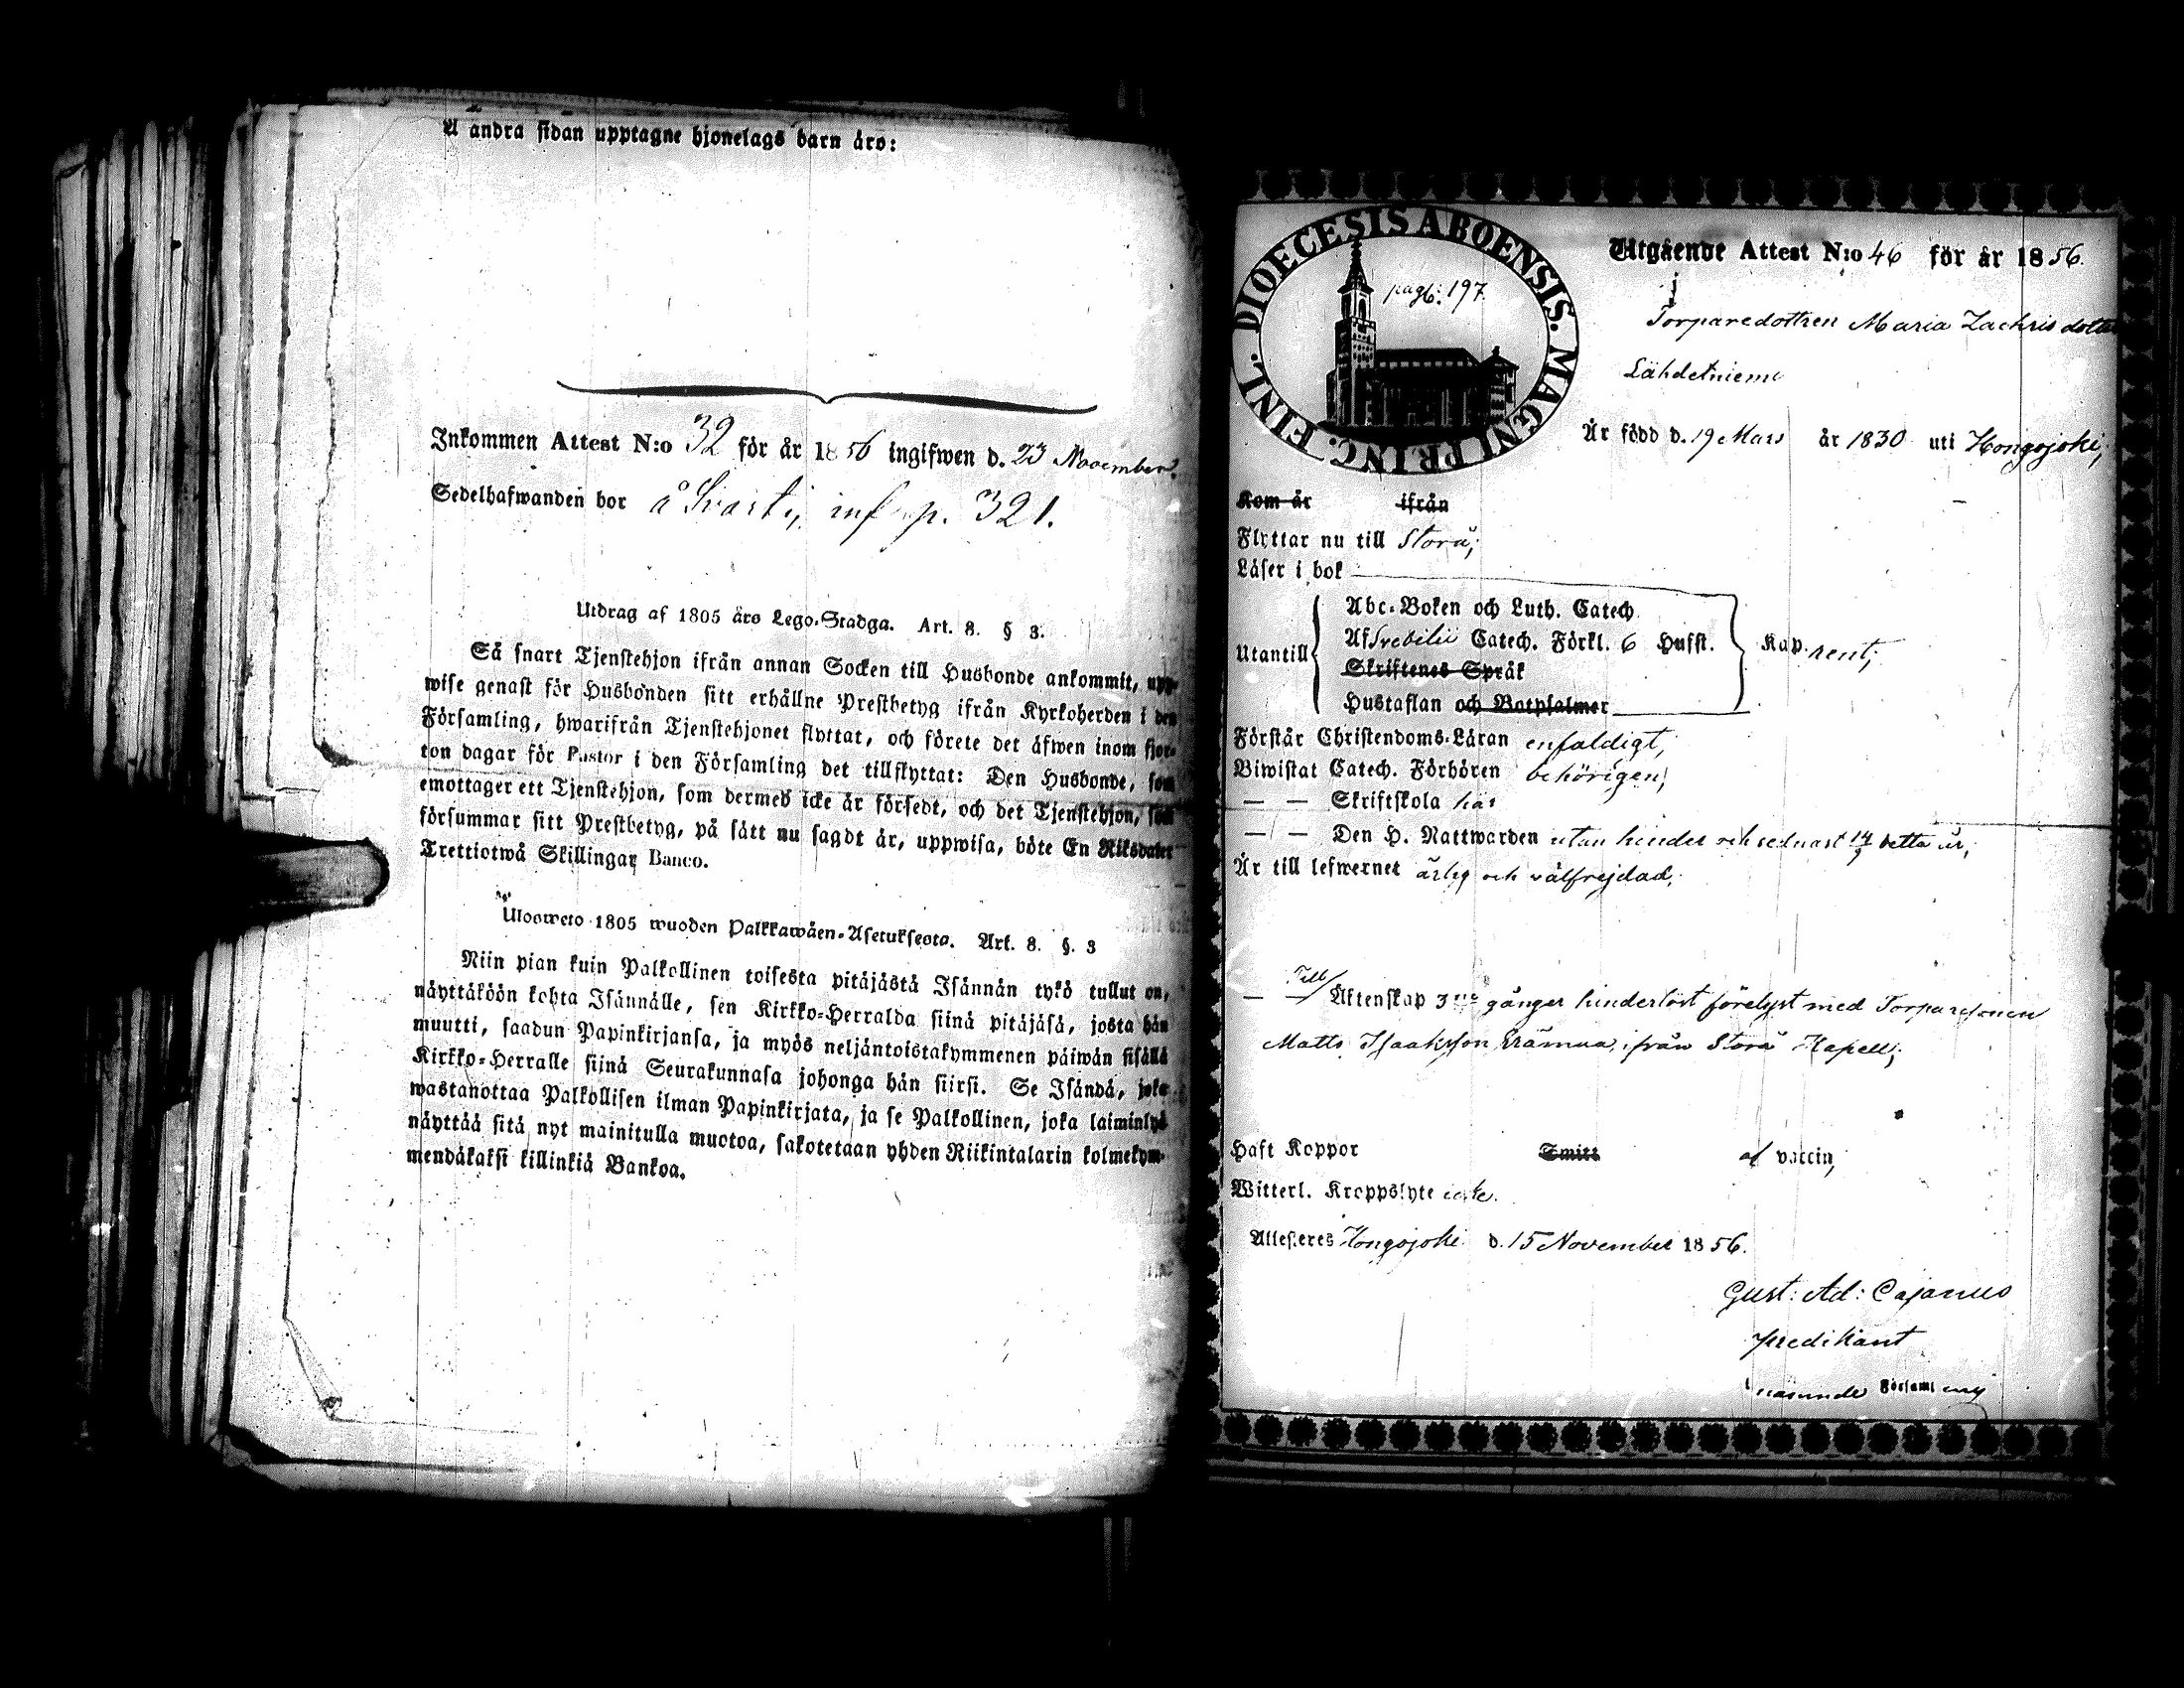 A andra sidan upptagne hjonelags barn äro:
Inkommen Attest N:o 32 för år 1856 ingifwen d. 23 November.
Sedelhafwanden bor å Svarti, inf p. 321.
Utdrag af 1805 års Lego-Stadga. Art. 8. § 3.
Så snart Tjenstehjon ifrån annan Socken till Husbonde ankommit, upp-
wise genast för Husbonden sitt erhållne Prestbetyg ifrån Kyrkoherden i den
Församling, hwarifrån Tjenstehjonet flyttat, och förete det äfwen inom fjor-
ton dagar för Pastor i den Församling det tillflyttat: Den Husbonde, som
emottager ett Tjenstehjon, som dermed icke är försedt, och det Tjenstehjon, som
försummar sitt Prestbetyg, på sätt nu sagdt är, uppwisa, böte En Riksdaler
Trettiotwå Skillingar Banco.
Ulosweto 1805 wuoden Palkkawäen-Asetuksesta. Art. 8. §. 3
Niin pian kuin Palkollinen toisesta pitäjästä Isännän tykö tullut on,
näyttäköön kohta Isännälle, sen Kirkko-Herralda siinä pitäjäsä, josta hän
muutti, saadun Papinkirjansa, ja myös neljäntoistakymmenen päiwän sisällä
Kirkko-Herralle siinä Seurakunnasa johonga hän siirsi. Se Isändä, joka
wastanottaa Palkollisen ilman Papinkirjata, ja se Palkollinen, joka laiminlyö
näyttää sitä nyt mainitulla muotoa, sakotetaan yhden Riikintalarin kolmekym-
mendäkaksi killinkiä Bankoa.
DIOECESIS ABOENSIS. MAGNI PRINC. FINL.
pag: 197
Utgående Attest N:o 46 för år 1856.
Torparedottren Maria Zachrisdotter
Lähdetniemi
Är född d. 19 Mars år 1830 uti Hongojoki,
Kom år ifrån
Flyttar nu till Storå;
Läser i bok
Abc-Boken och Luth. Catech.
Utantill Af Svebilii Catech. Förkl. 6 Hufst. Kap. rent;
Skriftenes Språk
Hustaflan och Botpsalmer
Förstår Christendoms-Läran enfaldigt,
Biwistat Catech. Förhören behörigen,
— — Skriftskola här
— — Den H. Nattwarden utan hinder och sednast 14/9 detta år,
Är till lefwernet ärlig och välfrejdad;
Till
— — Äktenskap 3ne gånger hinderlöst förelyst med Torparesonen
Matts Isaaksson Erämaa, ifrån Storå Kapell;
Haft Koppor Smitt af vaccin,
Witterl. Kroppslyte icke.
Attesteres Hongojoki d. 15 November 1856.
Gust: Ad: Cajanus
predikant
Församl